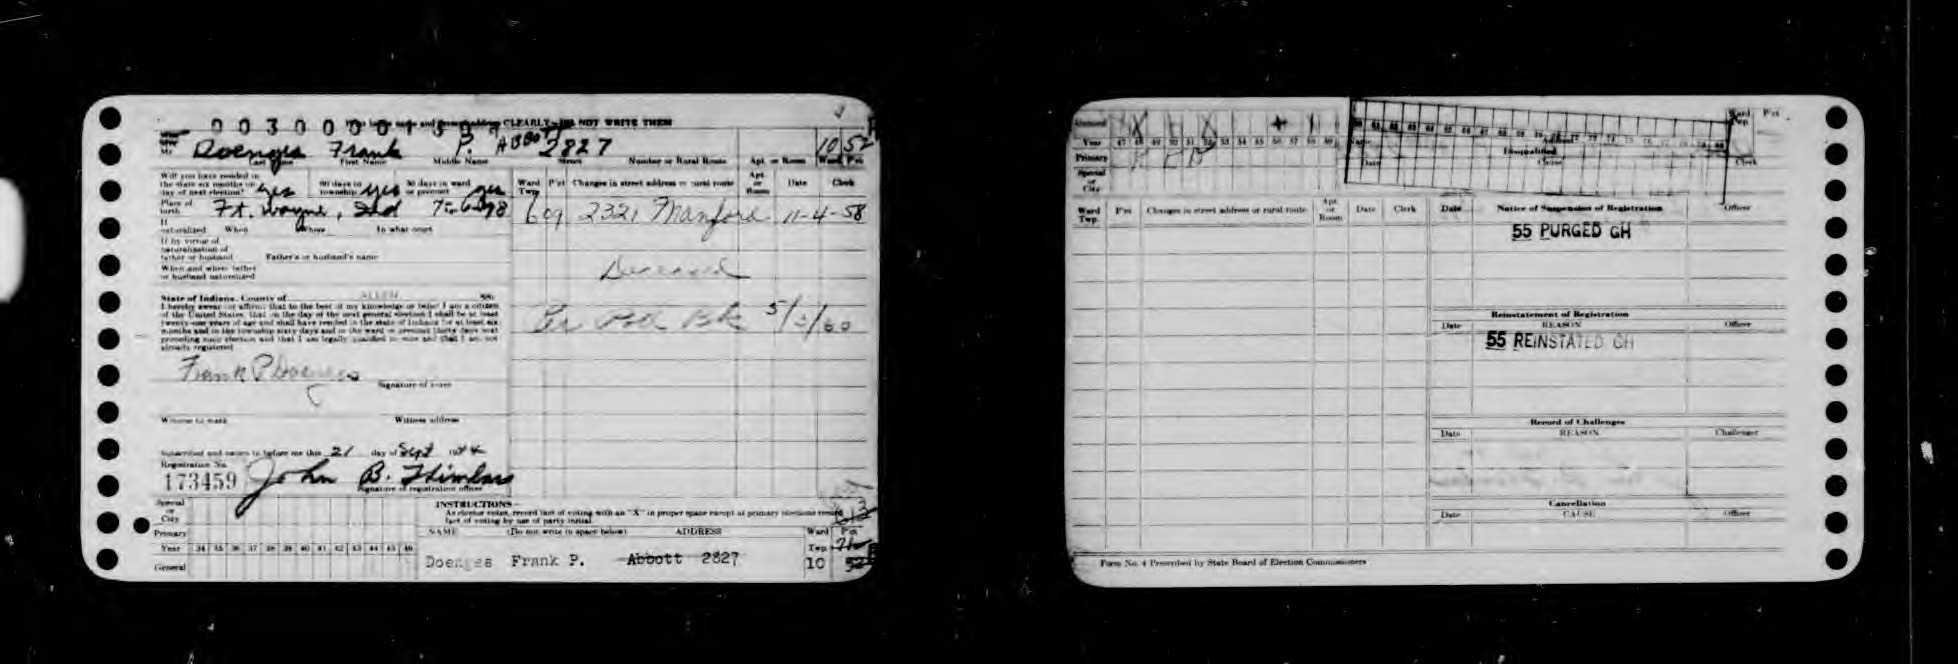 CLEARLY DO NOT WRITE THEM
Doenges Frank P. ABBOTT 2827 10 52
Last Name First Name Middle Name Street Number or Rural Route Apt. or Room Ward Pct
Will you have resided in
the state six months on yes 60 days in township yes 30 days in ward or precinct yes
day of next election?
Ward Twp. P'ct Changes in street address or rural route Apt. or Room Date Clerk
Place of birth Ft. Wayne, Ind
609 2321 11-4-58
If naturalized When Where In what court
If by virtue of
naturalization of
father or husband Father's or husband's name
When and where father
or husband naturalized
Deceased
State of Indiana, County of ALLEN SS:
I hereby swear (or affirm) that to the best of my knowledge or belief I am a citizen
of the United States, that on the day of the next general election I shall be at least
twenty-one years of age and shall have resided in the state of Indiana for at least six
months and in the township sixty days and in the ward or precinct thirty days next
preceding such election and that I am legally qualified to vote and that I am not
already registered
Per Poll Bk 5/3/60
Frank P Doenges
Signature of voter
Witness to mark Witness address
Subscribed and sworn to before me this 21 day of Sept 1944
Registration No.
173459 John B.
Signature of registration officer
Special or City
INSTRUCTIONS
As elector votes, record fact of voting with an "X" in proper space except at primary elections record
fact of voting by use of party initial
Primary
NAME (Do not write in space below) ADDRESS Ward Pct
Year 34 35 36 37 38 39 40 41 42 43 44 45 46 Twp.
General
Doenges Frank P. Abbott 2827 10 52
General X X X
Year 47 48 49 50 51 52 53 54 55 56 57 58 59
Primary
Special or City
Ward Twp. P'ct
Date Clerk
Ward Twp. P'ct Changes in street address or rural route Apt. or Room Date Clerk Date Notice of Suspension of Registration Officer
55 PURGED GH
Reinstatement of Registration
Date REASON Officer
55 REINSTATED GH
Record of Challenges
Date REASON Challenger
Cancellation
Date CAUSE Officer
Form No. 4 Prescribed by State Board of Election Commissioners